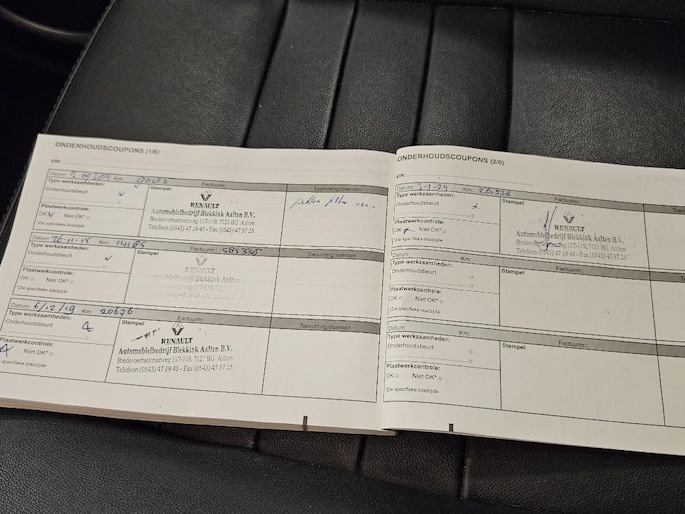 ONDERHOUDSCOUPONS (1/6)
VIN:
Datum: Km:
Type werkzaamheden: Stempel Factuurnr.: Toelichting/diversen
Onderhoudsbeurt
Plaatwerkcontrole:
OK Niet OK*
*Zie specifieke bladzijde
RENAULT
Automobielbedrijf Blekkink Aalten B.V.
Bredevoortsestraatweg 117-119, 7121 BG Aalten
Telefoon (0543) 47 19 45 - Fax (0543) 47 57 25
Datum: 26-11-18 Km: 14185
Type werkzaamheden: Stempel Factuurnr.: Toelichting/diversen
Onderhoudsbeurt
Plaatwerkcontrole:
OK Niet OK*
*Zie specifieke bladzijde
RENAULT
Automobielbedrijf Blekkink Aalten B.V.
Datum: 6/12/19 Km: 20676
Type werkzaamheden: Stempel Factuurnr.: Toelichting/diversen
Onderhoudsbeurt
Plaatwerkcontrole:
Niet OK*
*Zie specifieke bladzijde
RENAULT
Automobielbedrijf Blekkink Aalten B.V.
Bredevoortsestraatweg 117-119, 7121 BG Aalten
Telefoon (0543) 47 19 45 - Fax (0543) 47 57 25
ONDERHOUDSCOUPONS (2/6)
VIN:
Datum: Km:
Type werkzaamheden: Stempel Factuurnr.:
Onderhoudsbeurt
Plaatwerkcontrole:
OK Niet OK*
*Zie specifieke bladzijde
RENAULT
Automobielbedrijf Blekkink Aalten B.V.
117-119, 7121 BG Aalten
47 19 45 - Fax (0543) 47 57 25
Datum: Km:
Type werkzaamheden: Stempel Factuurnr.:
Onderhoudsbeurt
Plaatwerkcontrole:
OK Niet OK*
*Zie specifieke bladzijde
Datum: Km:
Type werkzaamheden: Stempel Factuurnr.:
Onderhoudsbeurt
Plaatwerkcontrole:
OK Niet OK*
*Zie specifieke bladzijde